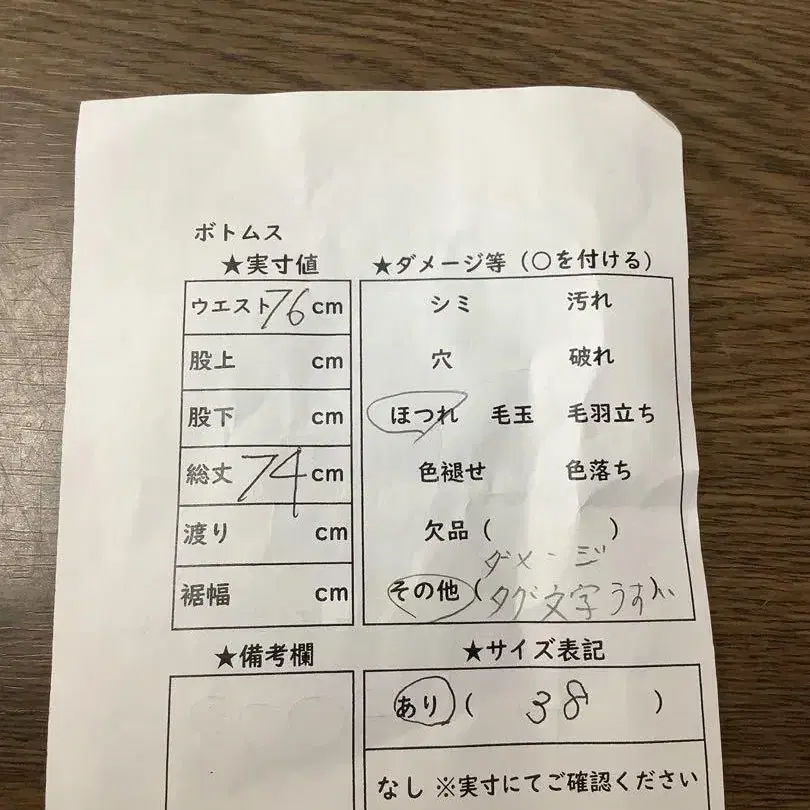 ボトムス
★実寸値
ウエスト 76 cm
股上 cm
股下 cm
総丈 74 cm
渡り cm
裾幅 cm
★ダメージ等（○を付ける）
シミ 汚れ
穴 破れ
ほつれ 毛玉 毛羽立ち
色褪せ 色落ち
欠品（ ）
ダメージ
その他（タグ文字うすい
★備考欄
★サイズ表記
あり（ 38 ）
なし ※実寸にてご確認ください